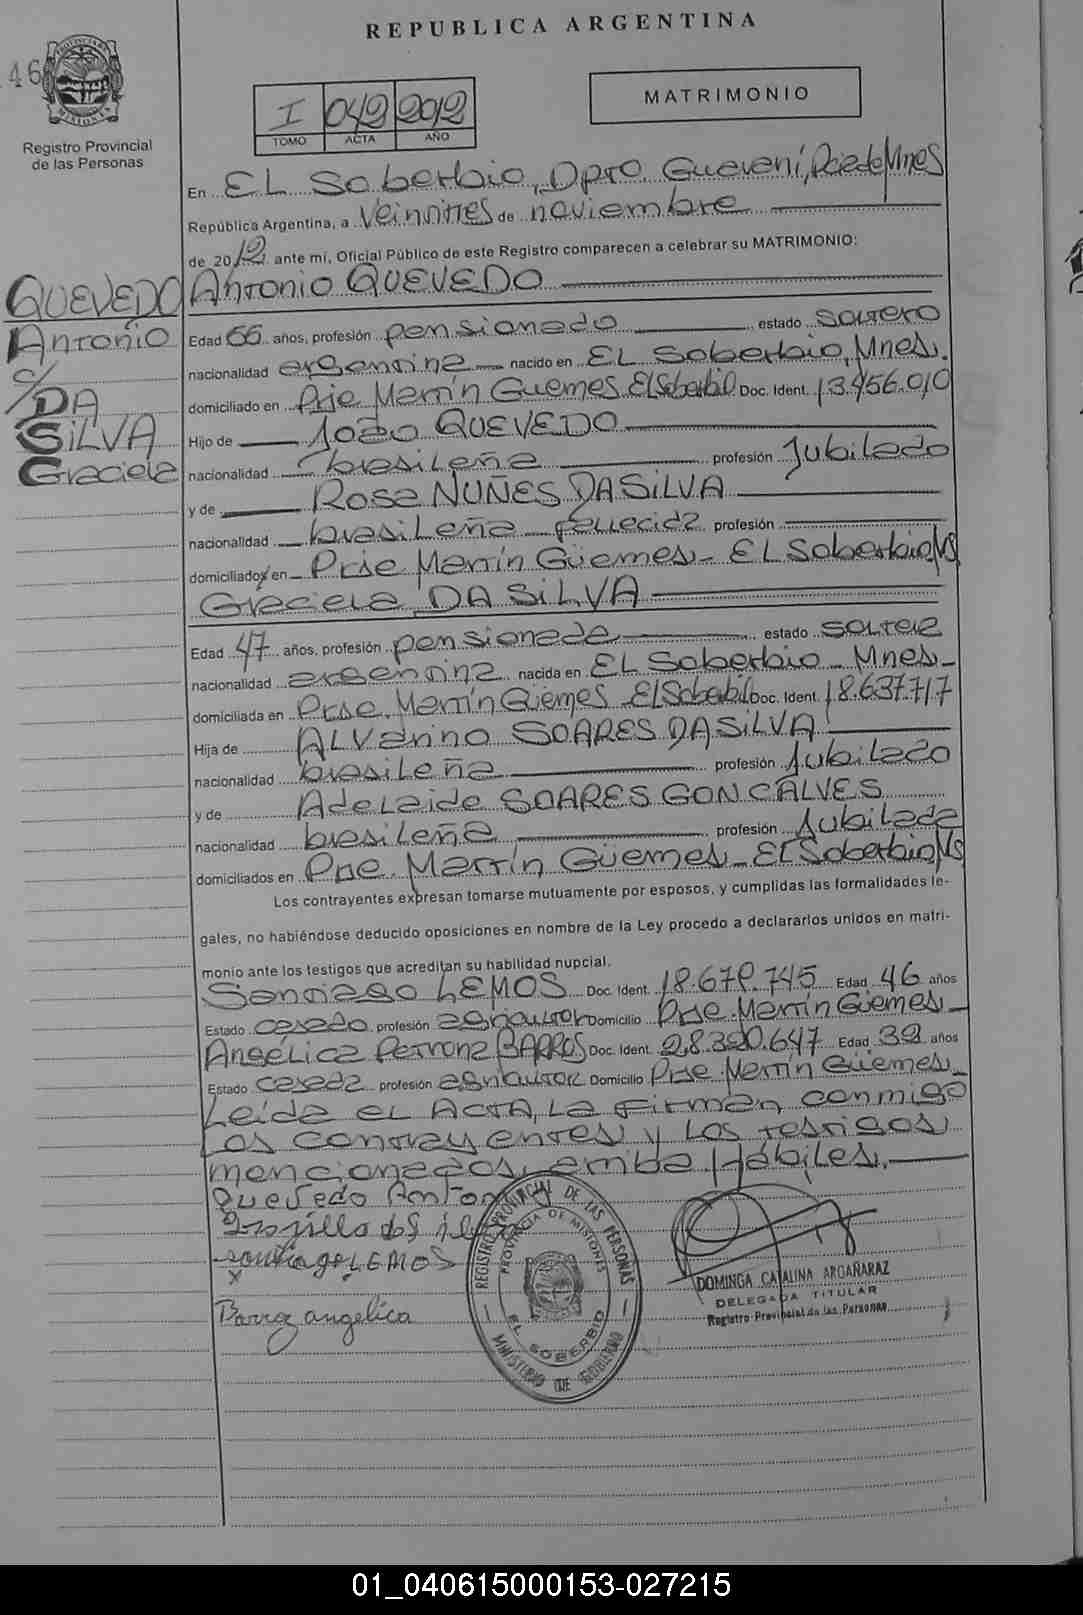 REPUBLICA ARGENTINA
46
PROVINCIA DE MISIONES
Registro Provincial
de las Personas
I 042 2012
TOMO ACTA AÑO
MATRIMONIO
En EL Soberbio, Dpto. Guarani, Pcia de Mnes
República Argentina, a Veintitres de noviembre
de 2012 ante mí, Oficial Público de este Registro comparecen a celebrar su MATRIMONIO:
QUEVEDO
Antonio
c/
DA
SILVA
Graciela
Antonio QUEVEDO
Edad 66 años, profesión pensionado estado soltero
nacionalidad argentina nacido en EL Soberbio, Mnes.
domiciliado en Prje Martín Guemes El Soberbio Doc. Ident. 13.456.010
Hijo de João QUEVEDO
nacionalidad brasileña profesión Jubilado
y de Rosa NUÑES DA SILVA
nacionalidad brasileña fallecida profesión
domiciliado en Prje Martín Güemes - EL Soberbio, Ms
Graciela DA SILVA
Edad 47 años, profesión pensionada estado soltera
nacionalidad argentina nacida en EL Soberbio - Mnes -
domiciliada en Prje. Martín Güemes El Soberbio Doc. Ident. 18.637.717
Hija de ALVanno SOARES DA SILVA
nacionalidad brasileña profesión Jubilado
y de Adelaide SOARES GONCALVES
nacionalidad brasileña profesión Jubilada
domiciliados en Prje. Martín Güemes - El Soberbio, Ms
Los contrayentes expresan tomarse mutuamente por esposos, y cumplidas las formalidades le-
gales, no habiéndose deducido oposiciones en nombre de la Ley procedo a declararlos unidos en matri-
monio ante los testigos que acreditan su habilidad nupcial.
Santiago LEMOS Doc. Ident. 18.679.745 Edad 46 años
Estado casado profesión agricultor Domicilio Prje. Martín Güemes -
Angélica Petrona BARROS Doc. Ident. 28.320.647 Edad 32 años
Estado casada profesión agricultor Domicilio Prje Martín Güemes -
Leída el ACTA, La Firman conmigo
Los contrayentes y Los testigos
mencionados, arriba Hábiles.
Quevedo Anton
santiago LEMOS
x
Barros angelica
REGISTRO PROVINCIAL DE LAS PERSONAS
PROVINCIA DE MISIONES
EL SOBERBIO
MINISTERIO DE GOBIERNO
DOMINGA CATALINA ARGAÑARAZ
DELEGADA TITULAR
Registro Provincial de las Personas
01_040615000153-027215